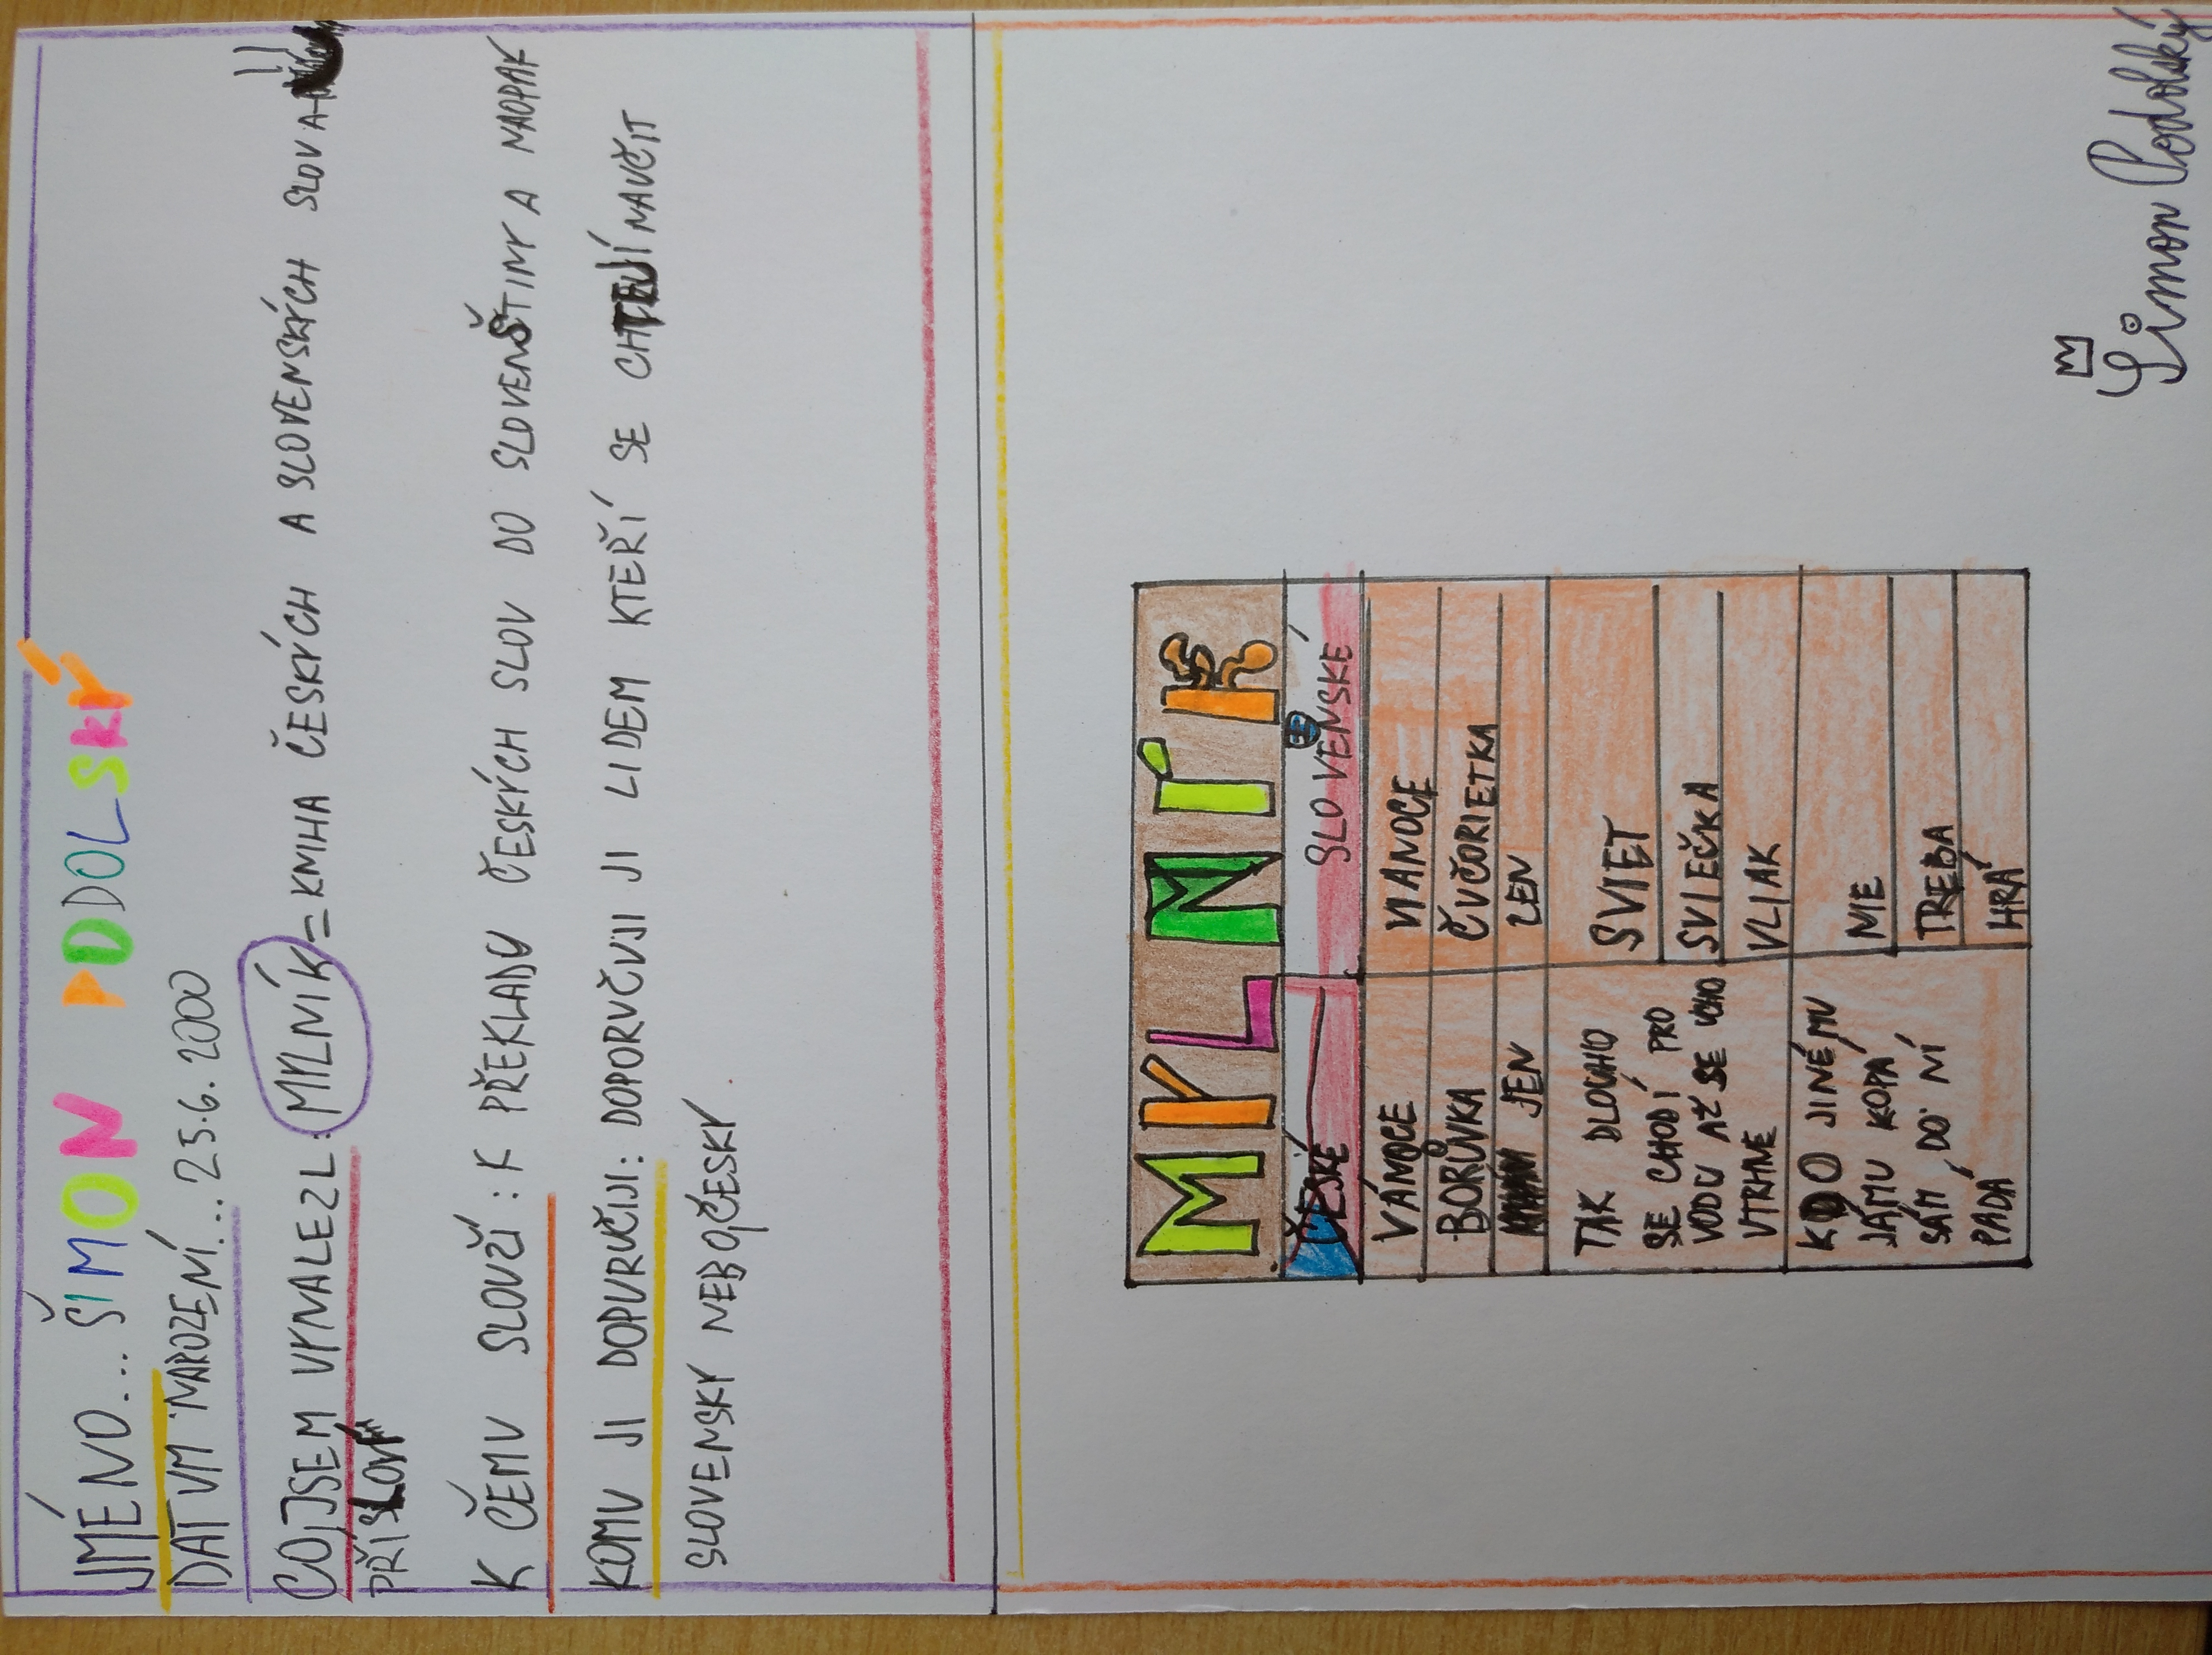 JMÉNO... ŠIMON PODOLSKÝ
DATUM NAROZENÍ... 25.6.2000
CO JSEM VYNALEZL: MYLNÍK = KNIHA ČESKÝCH A SLOVENSKÝCH SLOV A
PŘÍSLOVÍ
K ČEMU SLOUŽÍ: K PŘEKLADU ČESKÝCH SLOV DO SLOVENŠTINY A NAOPAK
KOMU JI DOPURUČIJI: DOPORUČUJI JI LIDEM KTEŘÍ SE CHTĚJÍ NAUČIT
SLOVENSKY NEBO ČESKY
MYLNÍK
ČESKÉ SLOVENSKÉ
VÁNOCE VIANOCE
BORŮVKA ČUČORIETKA
JEN LEN
TAK DLOUHO SVIET
SE CHODÍ PRO SVIEČKA
VODU AŽ SE UCHO VLIAK
UTRHNE
KDO JINÉMU NIE
JÁMU KOPÁ TREBA
SÁM DO NÍ HRÁ
PADÁ
Šimon Podolský